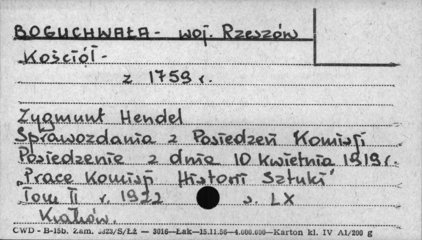 BOGUCHWAŁA - woj. Rzeszów
Kościół -
z 1759 r.
Zygmunt Hendel
Sprawozdania z Posiedzeń Komisji
Posiedzenie z dnia 10 kwietnia 1919 r.
„Prace Komisji Historii Sztuki"
Tom II r. 1922 s. LX
Kraków.
CWD - B-15b. Zam. 5323/S/ŁŻ — 3016—Łak—15.11.56—4.000.000—Karton kl. IV A1/200 g